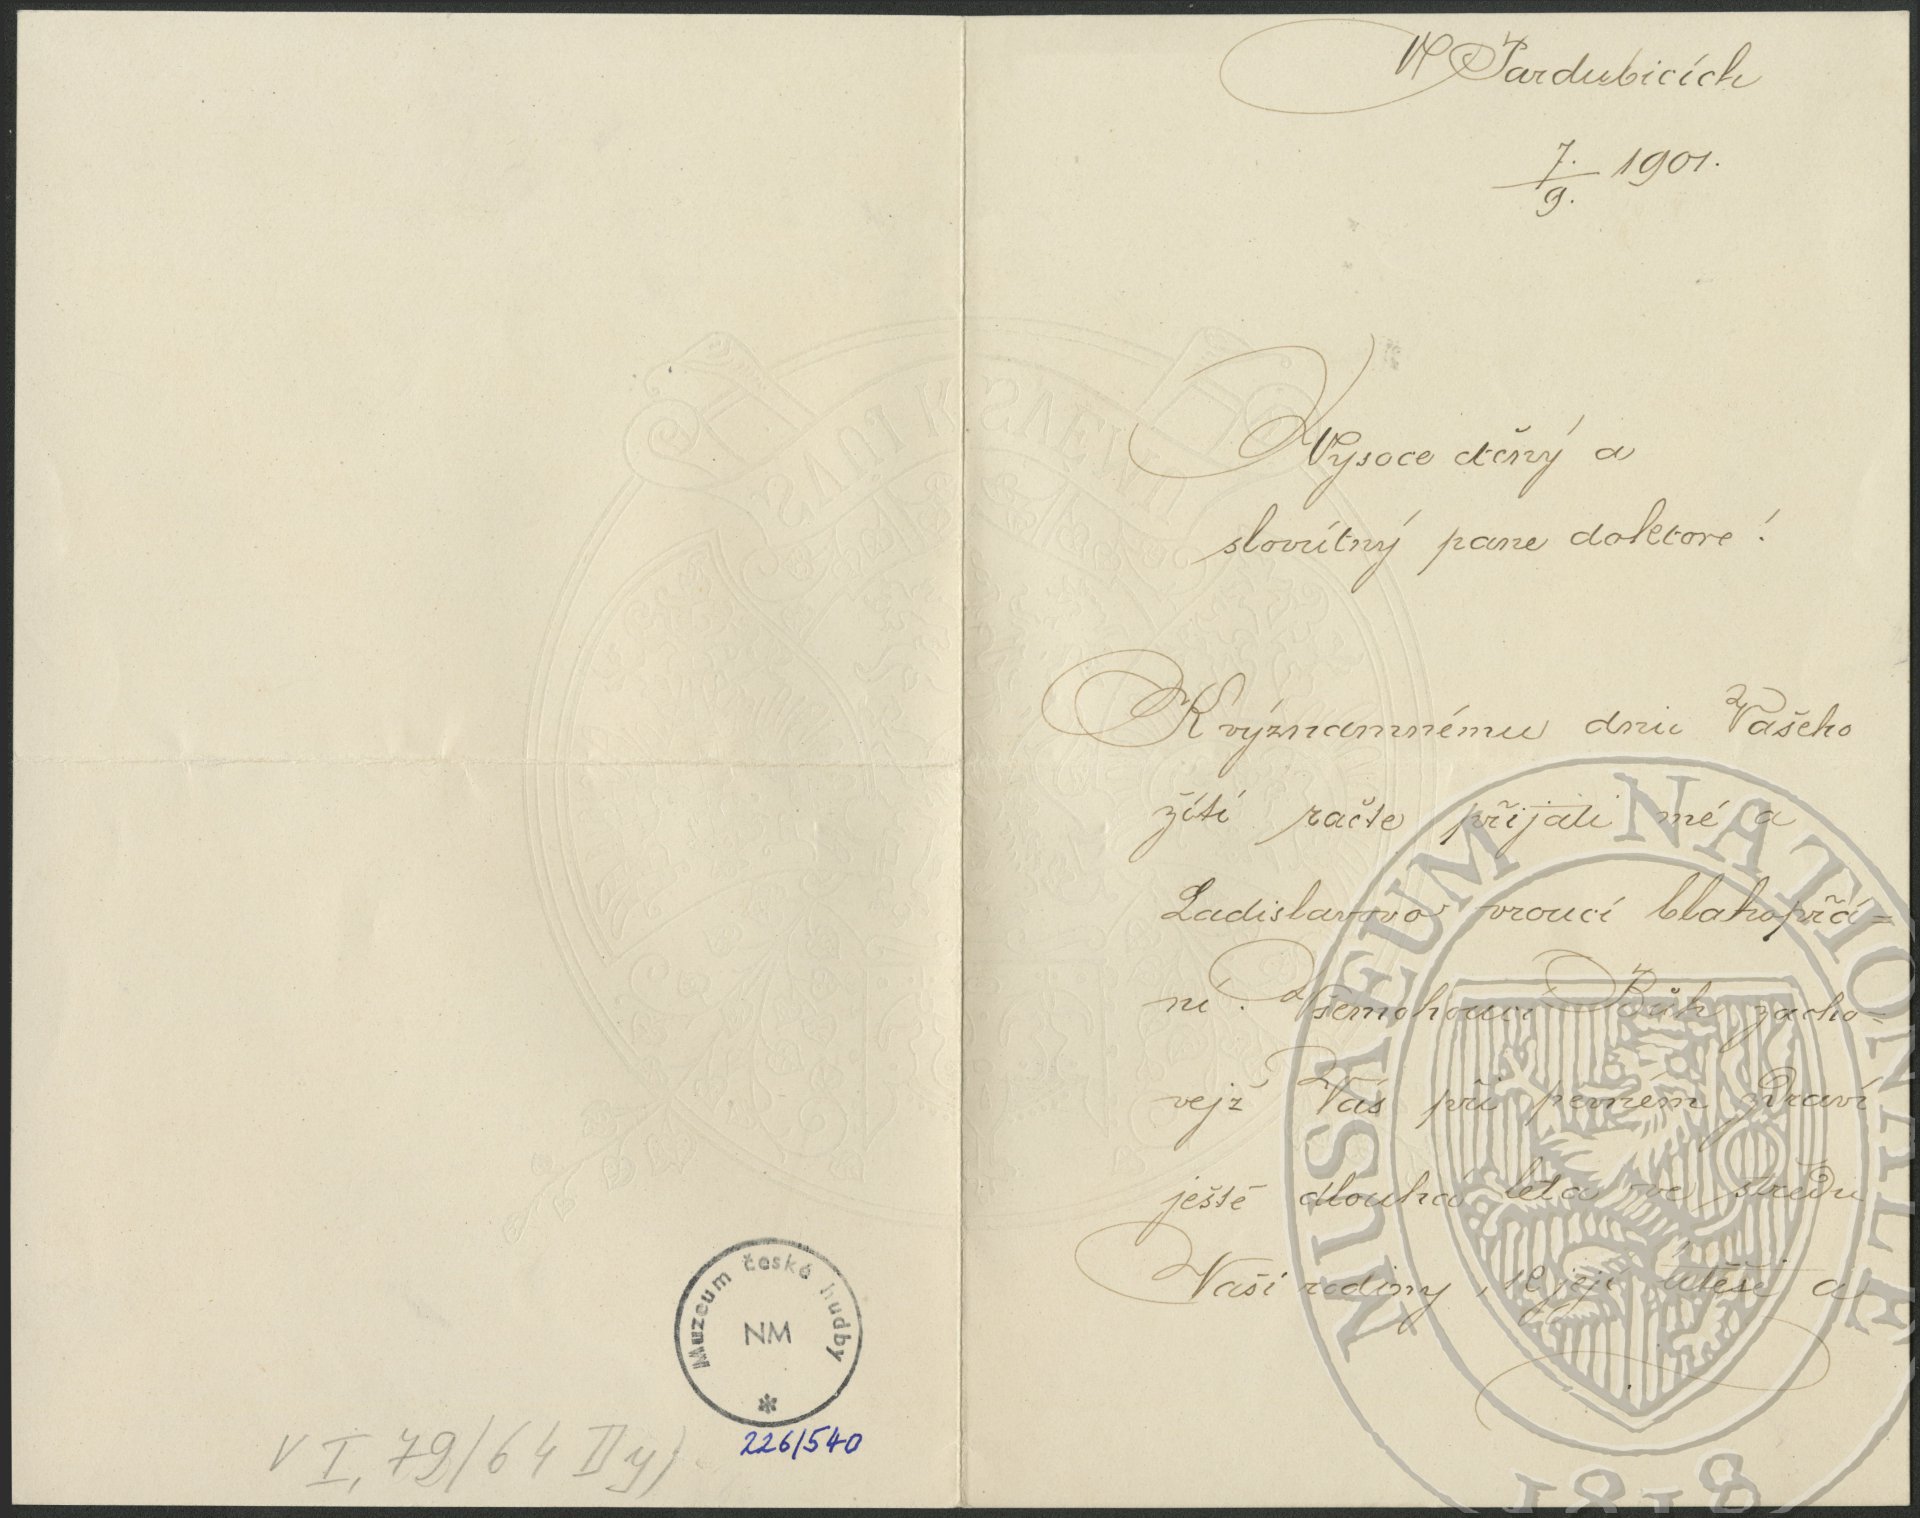 V Pardubicích
7./9. 1901.
Vysoce ctěný a
slovutný pane doktore!
K významnému dnu Vašeho
žití račte přijati mé a
Ladislavovo vroucí blahopřá=
ní. Všemohoucí Bůh zacho-
vejž Vás při pevném zdraví
ještě dlouhá léta ve středu
Vaší rodiny, k její útěše a
Muzeum české hudby
NM
226/540
V I, 79/64 II y)
MUSAEUM NATIONALE
1818